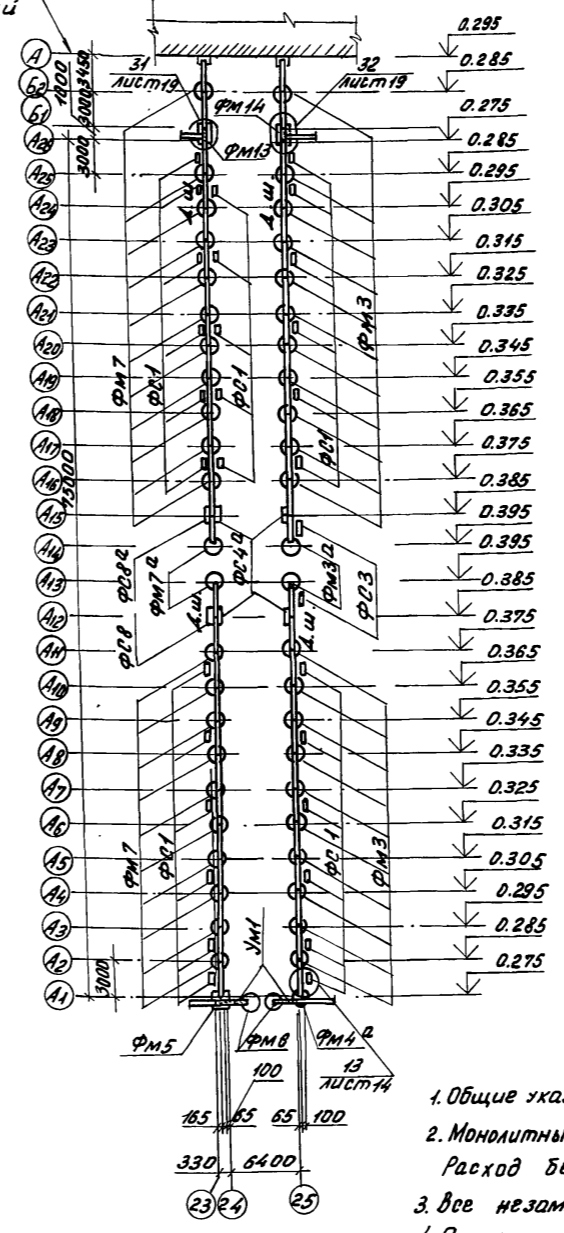 ий
А
Б2
Б1
А26
А25
А24
А23
А22
А21
А20
А19
А18
А17
А16
А15
А14
А13
А12
А11
А10
А9
А8
А7
А6
А5
А4
А3
А2
А1
3450
1800
3000
3000
75000
3000
31
лист19
32
лист19
ФМ14
ФМ13
Д.Ш.
ФМ7
ФС1
ФС1
ФС1
ФМ3
ФС8а
ФМ7а
ФС4а
ФМ3а
ФС3
ФС8
Д.Ш.
Д.Ш.
ФМ7
ФС1
ФС1
ФМ3
УМ1
ФМ5
ФМ8
ФМ4а
13
лист14
0.295
0.285
0.275
0.285
0.295
0.305
0.315
0.325
0.335
0.345
0.355
0.365
0.375
0.385
0.395
0.395
0.385
0.375
0.365
0.355
0.345
0.335
0.325
0.315
0.305
0.295
0.285
0.275
100
165 65 65 100
330 6400
23 24 25
1. Общие ука
2. Монолитны
Расход бе
3. Все незам